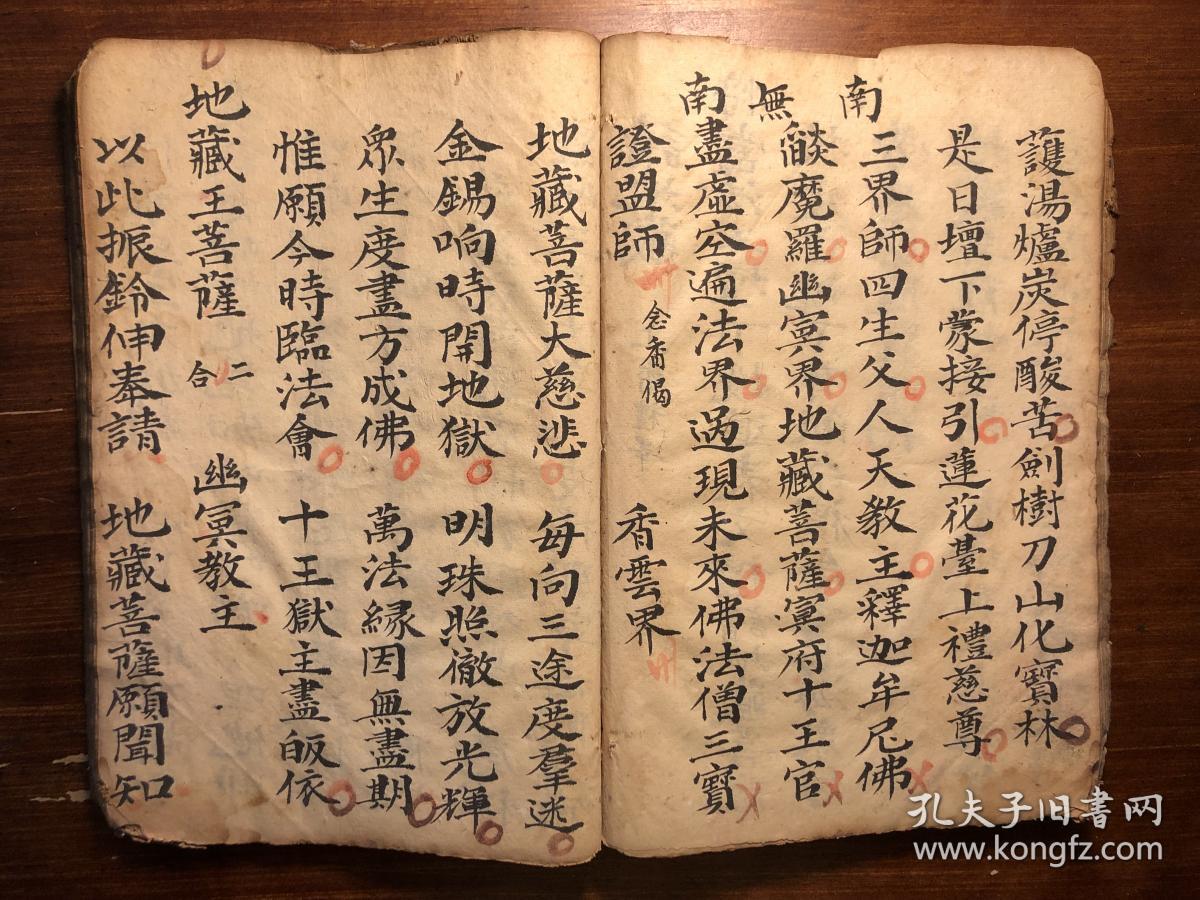 護湯爐炭停酸苦劍樹刀山化寶林
是日壇下蒙接引蓮花臺上禮慈尊
南三界師四生父人天教主釋迦牟尼佛
無燄魔羅幽冥界地藏菩薩冥府十王官
南盡虛空遍法界過現未來佛法僧三寶
證盟師 念香偈 香雲界
地藏菩薩大慈悲 每向三途度羣迷
金錫响時開地獄 明珠照徹放光輝
眾生度盡方成佛 萬法緣因無盡期
惟願今時臨法會 十王獄主盡皈依
地藏王菩薩 二合 幽冥教主
以此振鈴伸奉請 地藏菩薩願聞知
孔夫子旧书网
www.kongfz.com